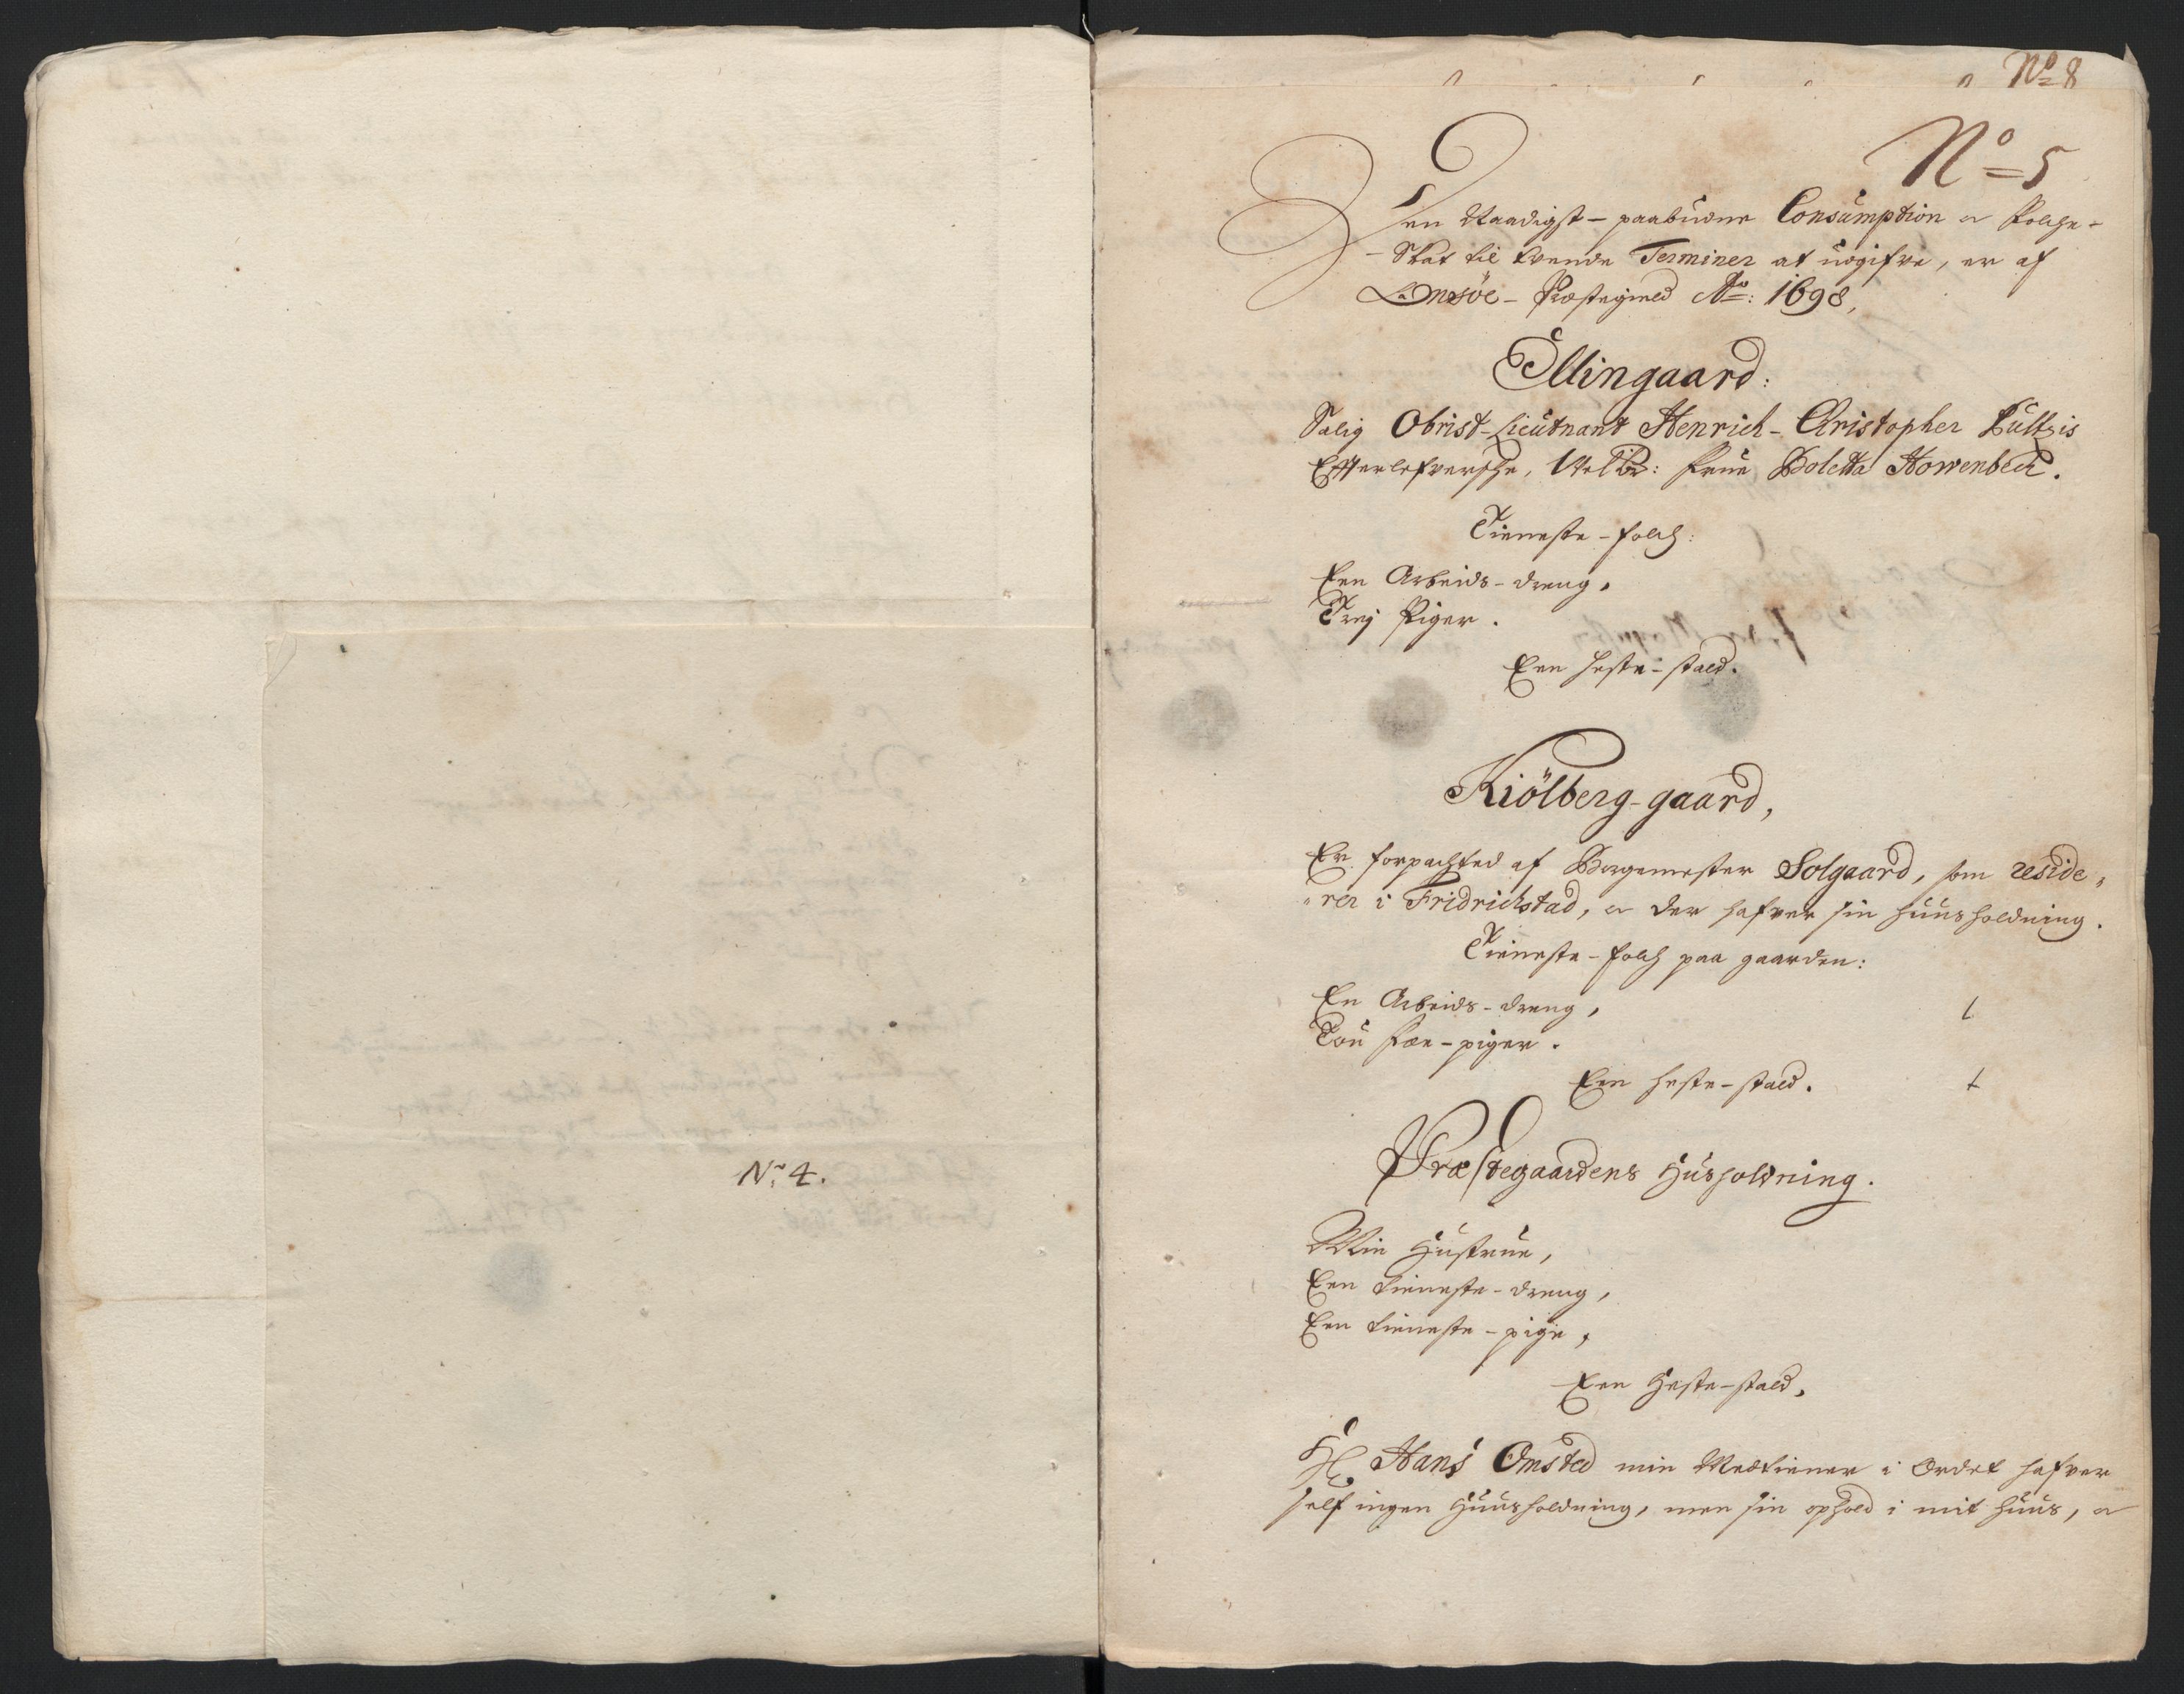 Nr: 4.
No 8
No 5
Den Naadigst-paabudne Consumption oc Folche-
-Skat til tvende Terminer at udgifve, er af
Onsöe-Præstegield Ao: 1698,
Ellingaard:
Salig Obrist-Lieutnant Henrich-Christopher Bültzis
Effterlefversche, Velb: Frue Boletta Howenbech.
Tieneste-folch:
Een Arbeids-dreng,
Trej Piger.
Een heste-stald.
Kiölberg-gaard,
Er forpachted af Borgemester Solgaard, som reside-
-rer i Fridrichstad, oc der hafver sin huusholdning.
Tieneste-folch paa gaarden:
En Arbeids-dreng,
Tou Fæe-piger.
Een heste-stald.
Præstegaardens Husholdning.
Min Hustrue,
Een tieneste-dreng,
Een tieneste-pige,
Een Heste-stald.
Hr. Hans Omsted min Medtiener i Ordet hafver
self ingen Huusholdning, men sin ophold i mit huus, oc